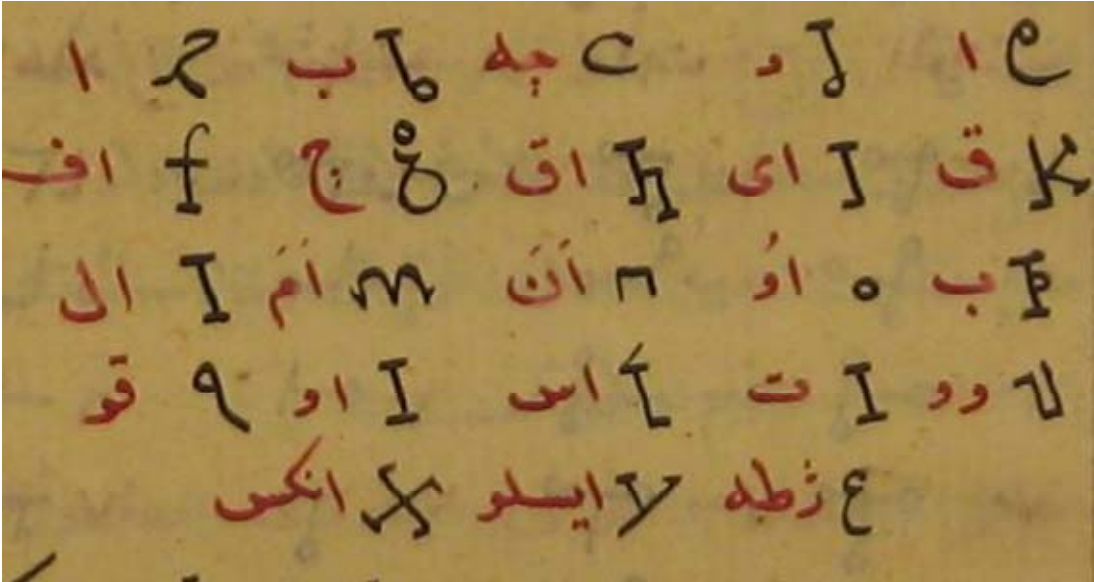 ا a ب b جه c د d ا e
اف f ج g اق h اى i ق k
ال l اَمَ m اَنَ n اُو o ب p
قو q او r اس s ت t وو u
انكس x ايسلو y ژطه z